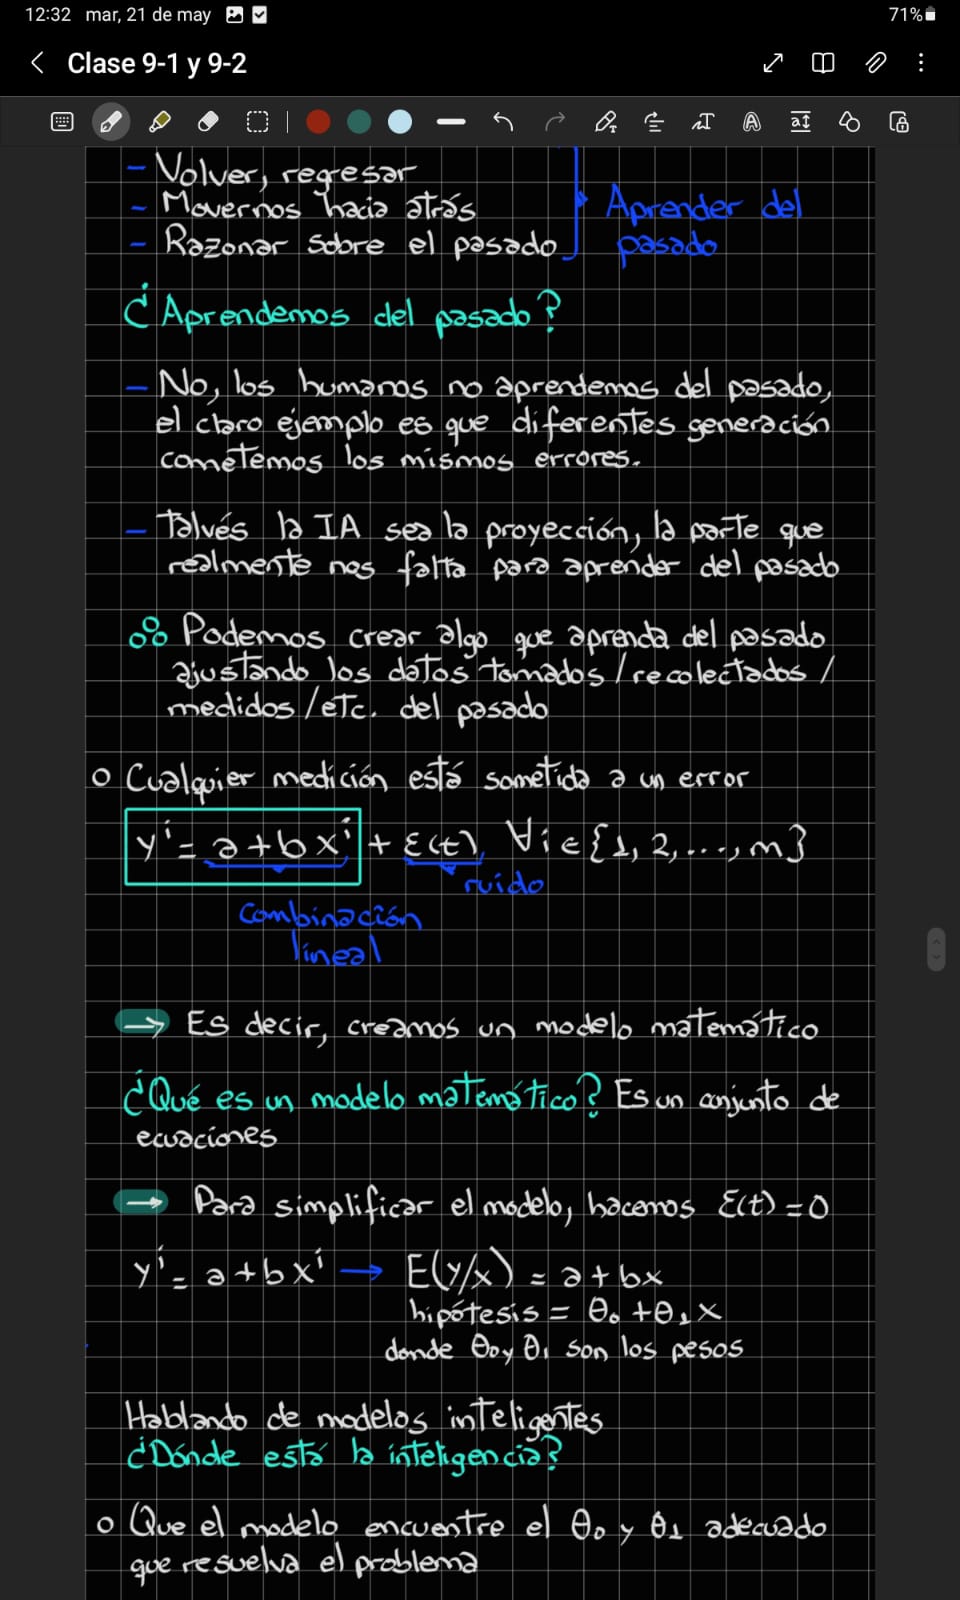 12:32 mar, 21 de may 71%
Clase 9-1 y 9-2
- Volver, regresar
- Movernos hacia atrás
- Razonar sobre el pasado
Aprender del
pasado
¿Aprendemos del pasado?
- No, los humanos no aprendemos del pasado,
el claro ejemplo es que diferentes generación
cometemos los mismos errores.
- Talvés la IA sea la proyección, la parte que
realmente nos falta para aprender del pasado
Podemos crear algo que aprenda del pasado
ajustando los datos tomados/recolectados/
medidos/etc. del pasado
o Cualquier medición está sometida a un error
yⁱ = a + b xⁱ + ε(t), ∀ i ∈ {1, 2, ..., m}
ruido
combinación
lineal
→ Es decir, creamos un modelo matemático
¿Qué es un modelo matemático? Es un conjunto de
ecuaciones
→ Para simplificar el modelo, hacemos ε(t) = 0
yⁱ = a + b xⁱ → E(y/x) = a + bx
hipótesis = θ₀ + θ₁ x
donde θ₀ y θ₁ son los pesos
Hablando de modelos inteligentes
¿Dónde está la inteligencia?
o Que el modelo encuentre el θ₀ y θ₁ adecuado
que resuelva el problema